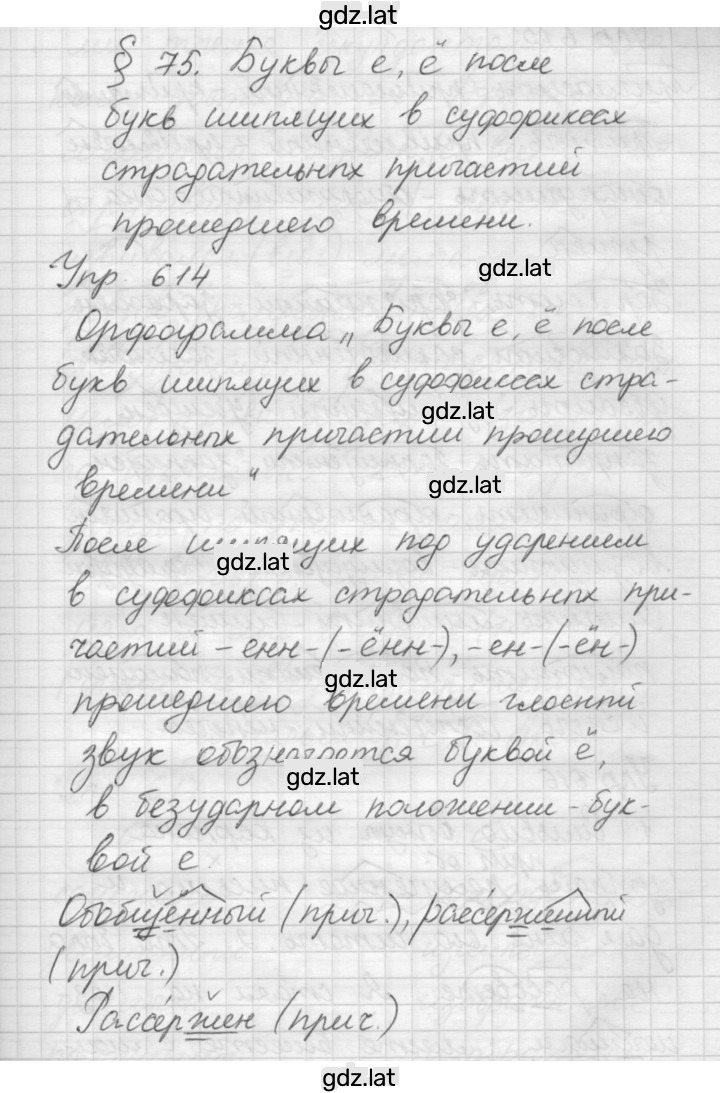 gdz.lat
§ 75. Буквы е, ё после
букв шипящих в суффиксах
страдательных причастий
прошедшего времени.
Упр. 614
gdz.lat
Орфограмма „Буквы е, ё после
букв шипящих в суффиксах стра-
gdz.lat
дательных причастии прошедшего
времени“
gdz.lat
После шипящих под ударением
gdz.lat
в суффиксах страдательных при-
частий -енн-(-ённ-), -ен-(-ён-)
gdz.lat
прошедшего времени гласный
звук обозначается буквой ё,
gdz.lat
в безударном положении - бук-
вой е.
Обобщённый (прич.), рассерженный
(прич.)
Рассержен (прич.)
gdz.lat